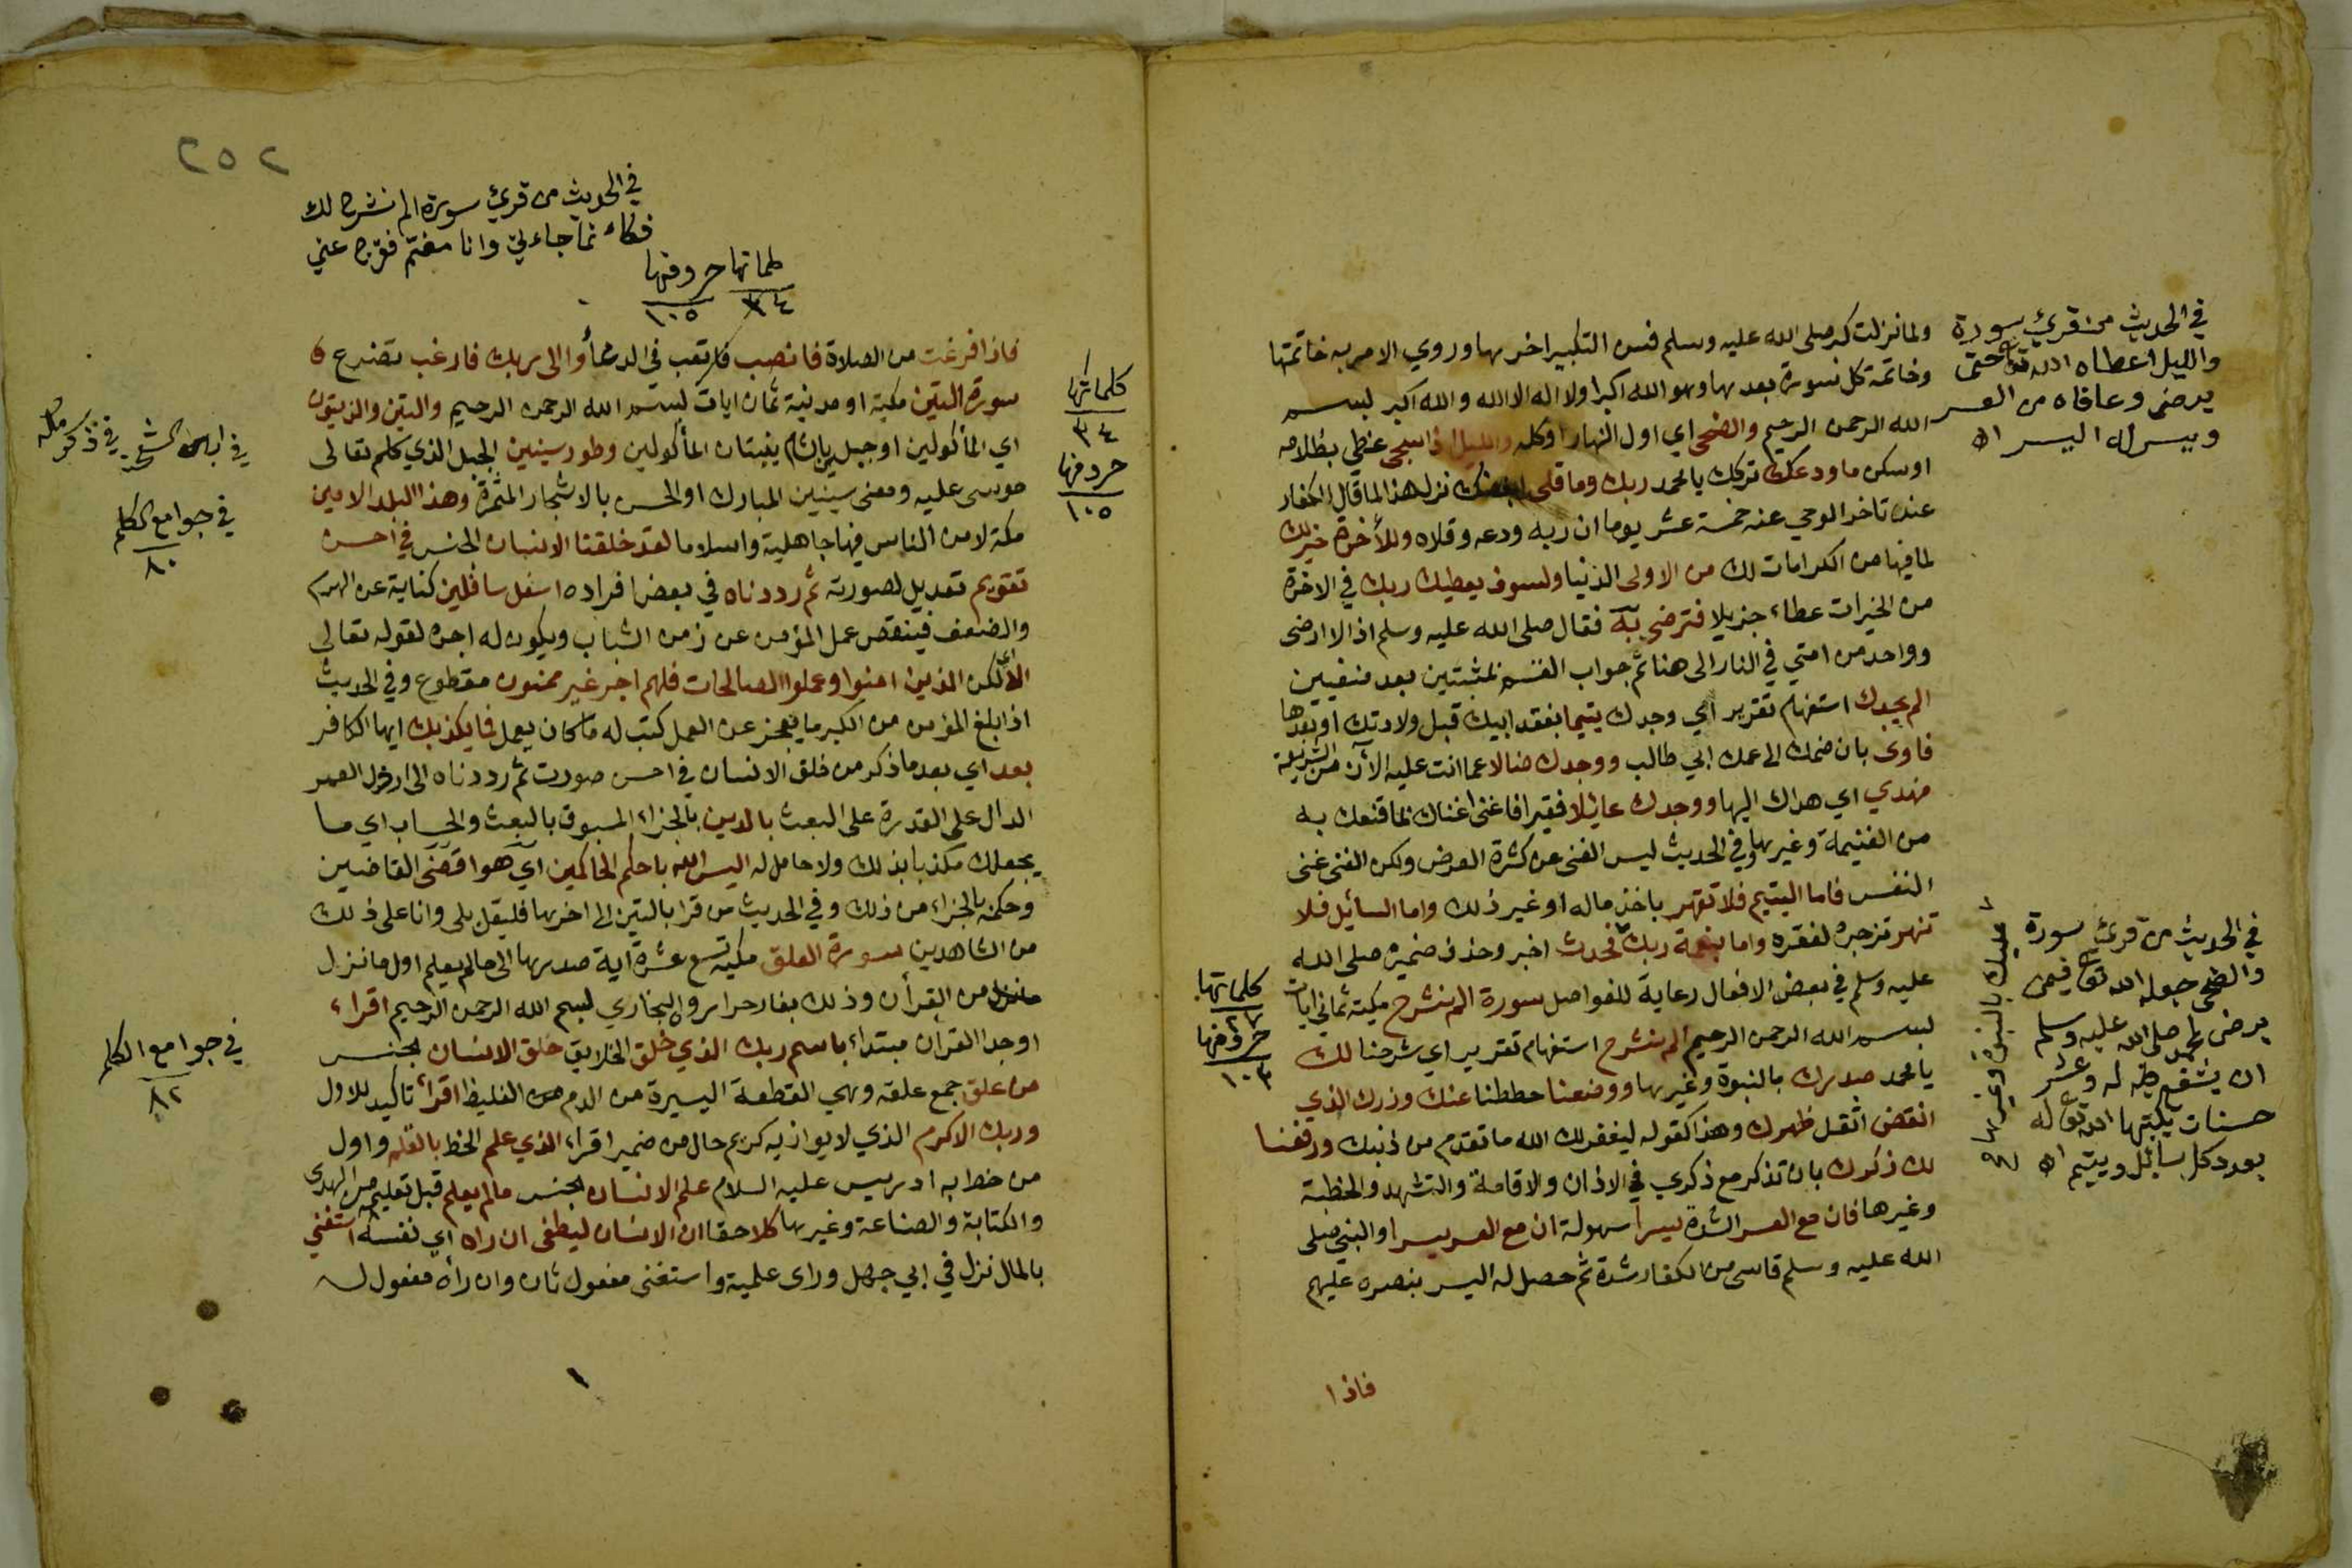 ولما نزلت كبر صلى الله عليه وسلم فسن التكبير اخرها وروي الامر به خاتمتها
وخاتمة كل سورة بعدها وهو الله اكبر او لا اله الا الله والله اكبر بسم
الله الرحمن الرحيم والضحى اي اول النهار او كله والليل اذا سجى غطى بظلامه
او سكن ما ودعك تركك يا محمد ربك وما قلى ابغضك نزل هذا لما قال الكفار
عند تاخر الوحي عنه خمسة عشر يوما ان ربه ودعه وقلاه وللأخرة خير لك
لما فيها من الكرامات لك من الاولى الدنيا ولسوف يعطيك ربك في الاخرة
من الخيرات عطاء جزيلا فترضى به فقال صلى الله عليه وسلم اذا لا ارضى
وواحد من امتي في النار الى هنا تم جواب القسم بمثبتين بعد منفيين
الم يجدك استفهام تقرير اي وجدك يتيما بفقد ابيك قبل ولادتك او بعدها
فاوى بان ضمك الى عمك ابي طالب ووجدك ضالا عما انت عليه الآن من الشريعة
فهدي اي هداك اليها ووجدك عايلا فقيرا فاغنى اغناك بما قنعك به
من الغنيمة وغيرها وفي الحديث ليس الغنى عن كثرة العرض ولكن الغنى غنى
النفس فاما اليتيم فلا تقهر باخذ ماله او غير ذلك واما السائل فلا
تنهر تزجره لفقره واما بنعمة ربك فحدث اخبر وحذف ضميره صلى الله
عليه وسلم في بعض الافعال رعاية للفواصل سورة الم نشرح مكية ثماني ايات
بسم الله الرحمن الرحيم الم نشرح استفهام تقرير اي شرحنا لك
يا محمد صدرك بالنبوة وغيرها ووضعنا حططنا عنك وزرك الذي
انقض اثقل ظهرك وهذا كقوله ليغفر لك الله ما تقدم من ذنبك ورفعنا
لك ذكرك بان تذكر مع ذكري في الاذان والاقامة والتشهد والخطبة
وغيرها فان مع العسر الشدة يسرا سهولة ان مع العسر يسرا والنبي صلى
الله عليه وسلم قاسى من الكفار شدة ثم حصل له اليسر بنصره عليهم
فاذا
في الحديث من قرئ سورة
والليل اعطاه الله تعالى حتى
يرضى وعافاه من العسر
ويسر له اليسر اه
في الحديث من قرئ سورة
والضحى جعله الله تعالى فيمن
يرضى لمحمد صلى الله عليه وسلم
ان يشفع له وعشر
حسنات يكتبها الله تعالى له
بعدد كل سائل ويتيم اه
عليك بالنبوة وغيرها
كلماتها
٢٧
حروفها
١٠٣
٢٥٢
في الحديث من قرئ سورة الم نشرح لك
فكاء نما جاءني وانا مغتم ففرج عني
كلماتها حروفها
٣٤ ١٠٥
فاذا فرغت من الصلاة فانصب فاتعب في الدعاء والى ربك فارغب تضرع
سورة التين مكية او مدنية ثمان ايات بسم الله الرحمن الرحيم والتين والزيتون
اي المأكولين او جبلين بالشام ينبتان المأكولين وطور سينين الجبل الذي كلم تعالى
موسى عليه ومعنى سينين المبارك او الحسن بالاشجار المثمرة وهذا البلد الامين
مكة لامن الناس فيها جاهلية واسلاما لقد خلقنا الانسان الجنس في احسن
تقويم تعديل لصورته ثم رددناه في بعض افراده اسفل سافلين كناية عن الهرم
والضعف فينقص عمل المؤمن عن زمن الشباب ويكون له اجره لقوله تعالى
الا اي لكن الذين امنوا وعملوا الصالحات فلهم اجر غير ممنون مقطوع وفي الحديث
اذا بلغ المؤمن من الكبر ما يعجز عن العمل كتب له ما كان يعمل فما يكذبك ايها الكافر
بعد اي بعد ما ذكر من خلق الانسان في احسن صورت ثم رددناه الى ارذل العمر
الدال على القدرة على البعث بالدين بالجزاء المسبوق بالبعث والحساب اي ما
يجعلك مكذبا بذلك ولا حامل له اليس الله باحكم الحاكمين اي هو اقضى القاضين
وحكمه بالجزاء من ذلك وفي الحديث من قرا بالتين الى اخرها فليقل بلى وانا على ذلك
من الشاهدين سورة العلق مكية تسع عشرة آية صدرها الى ما لم يعلم اول ما نزل
ما نزل من القرأن وذلك بغار حراء رواه البخاري بسم الله الرحمن الرحيم اقراء
اوجد القرآن مبتداء باسم ربك الذي خلق الخلايق خلق الانسان الجنس
من علق جمع علقه وهي القطعة اليسيرة من الدم الغليظ اقراء تاكيد للاول
وربك الاكرم الذي لا يوازيه كريم حال من ضمير اقراء الذي علم الخط بالقلم واول
من خط به ادريس عليه السلام علم الانسان الجنس ما لم يعلم قبل تعليمه من الهدى
والكتابة والصناعة وغيرها كلا حقا ان الانسان ليطغى ان راه اي نفسه استغنى
بالمال نزل في ابي جهل وراى علمية واستغنى مفعول ثان وان رأه مفعول له
كلماتها
٣٤
حروفها
١٠٥
في جوامع الكلم
٨٠
في جوامع الكلم
٨٢